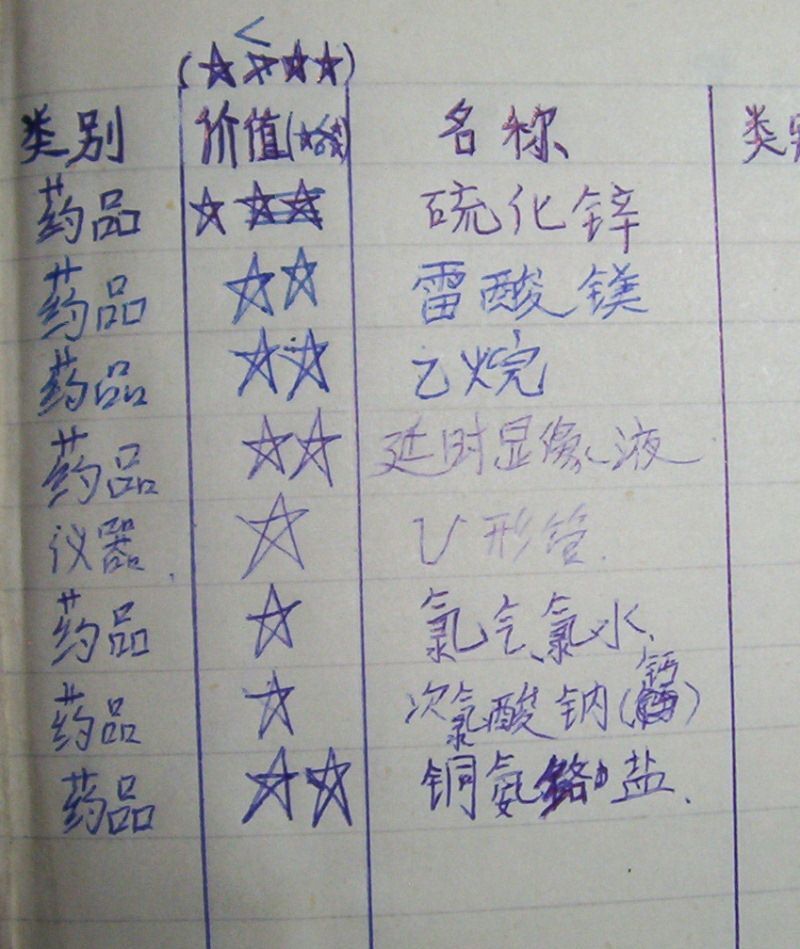 <
(★★★★)
类别 价值(★★★) 名称 类别
药品 ☆☆☆ 硫化锌
药品 ☆☆ 雷酸镁
药品 ☆☆ 乙烷
药品 ☆☆ 延时显像液
仪器 ☆ U形管.
药品 ☆ 氯气、氯水.
药品 ☆ 次氯酸钠(钙)
药品 ☆☆ 铜氨络盐.